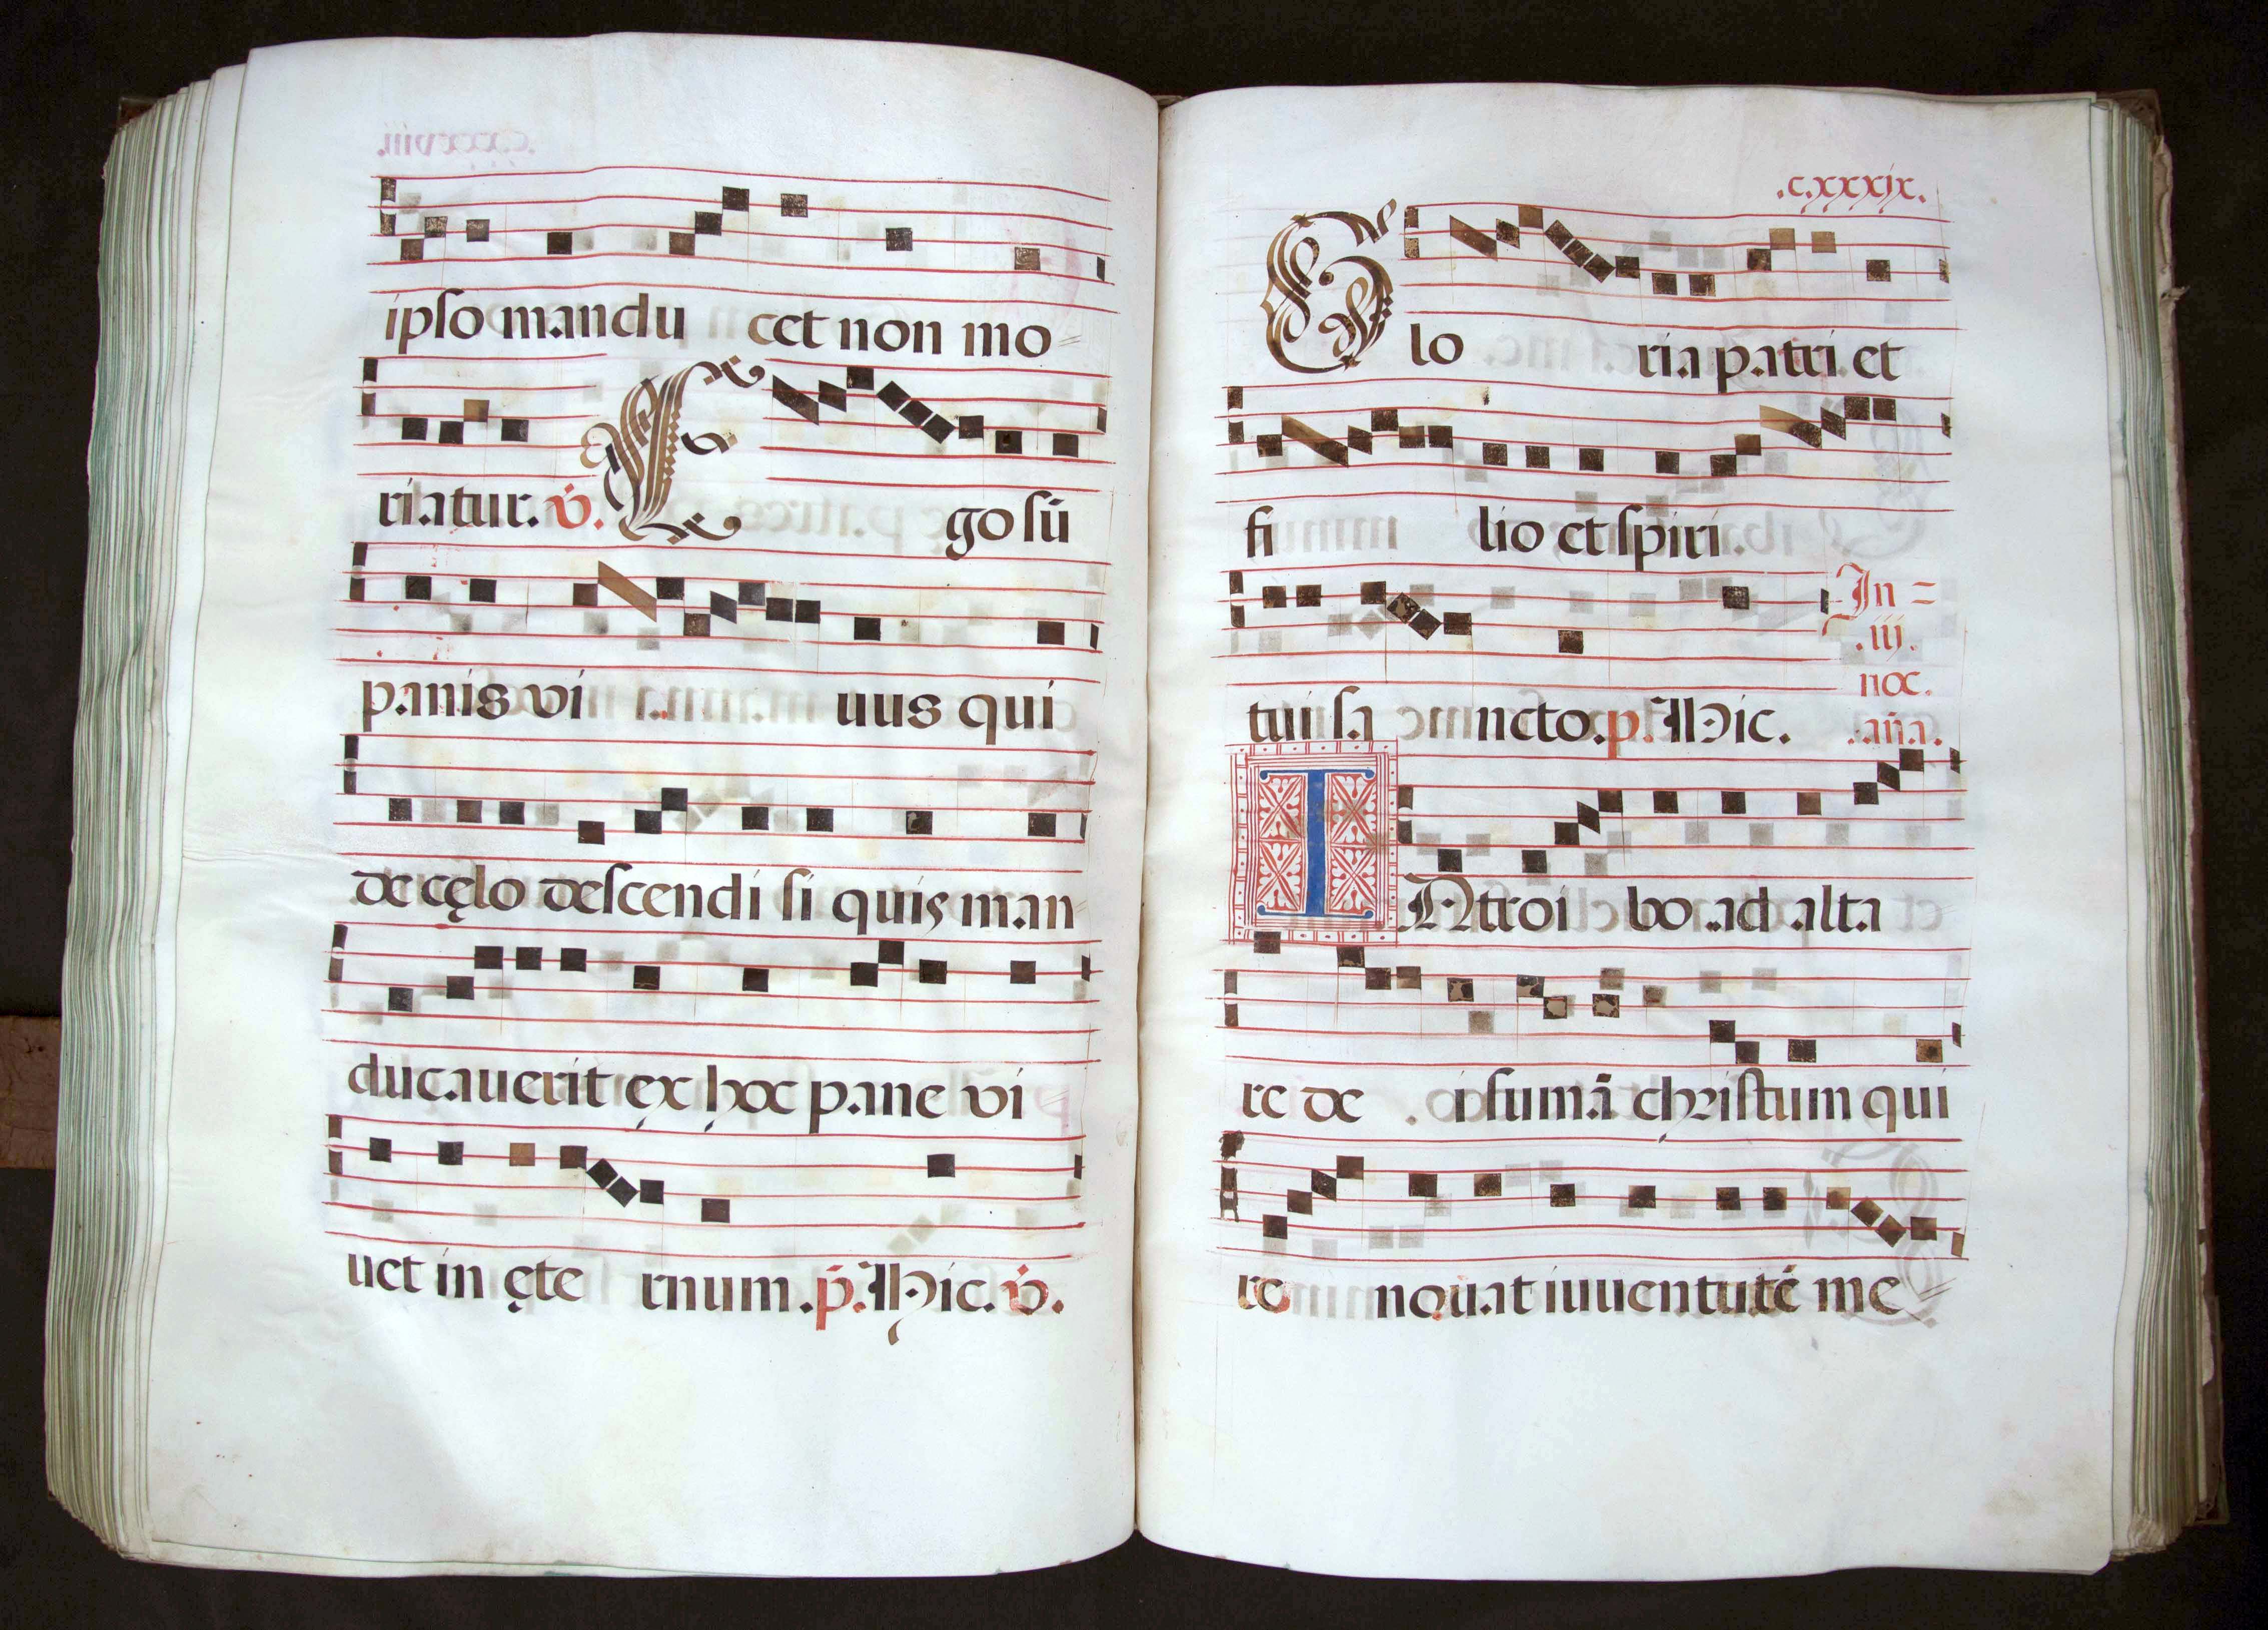 ipso mandu cet non mo=
riatur. v̇. Ego sū
panis vi uus qui
de cęlo descendi si quis man=
ducauerit ex hoc pane vi=
uet in ęte rnum. p̄. Hic. v̇.
.cxxxix.
Glo ria patri et
fi lio et spiri
tui sa ncto. p. Hic.
In =
.iij.
noc.
.aña.
INtroi bo ad alta
re de i sumā christum qui
re nouat iuuentutē me=